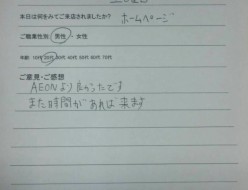 本日は何をみてご来店されましたか? ホームページ
ご職業性別 男性・女性
年齢 10代 20代 30代 40代 50代 60代 70代
ご意見・ご感想
AEONより良かったです
また時間があれば来ます